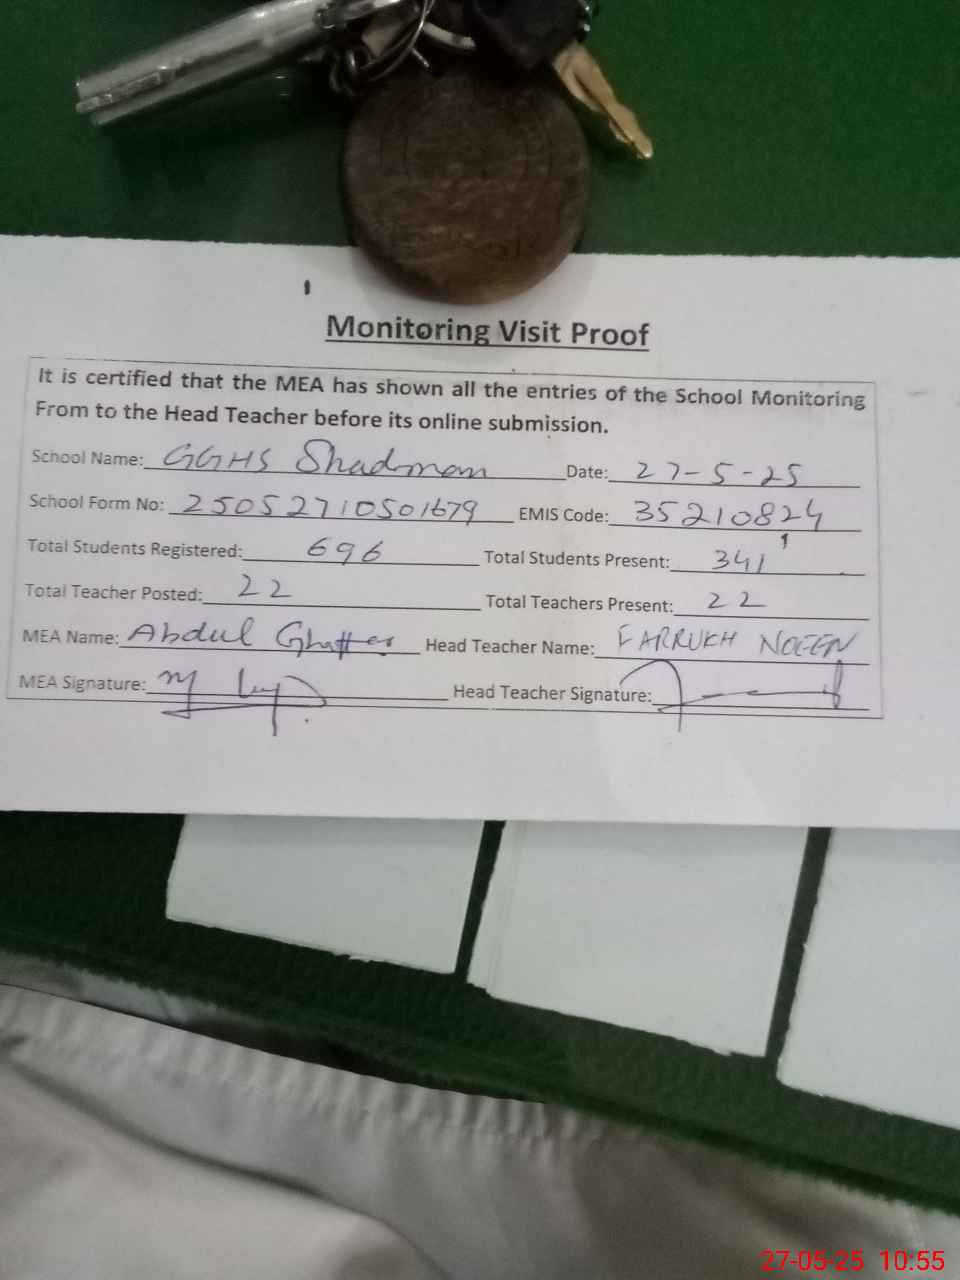 Monitoring Visit Proof
It is certified that the MEA has shown all the entries of the School Monitoring
From to the Head Teacher before its online submission.
School Name: GGHS Shadman Date: 27-5-25
School Form No: 25052710501679 EMIS Code: 35210824
Total Students Registered: 696 Total Students Present: 341
Total Teacher Posted: 22 Total Teachers Present: 22
MEA Name: Abdul Ghaffar Head Teacher Name: FARRUKH NOEEN
MEA Signature: Head Teacher Signature:
27-05-25 10:55